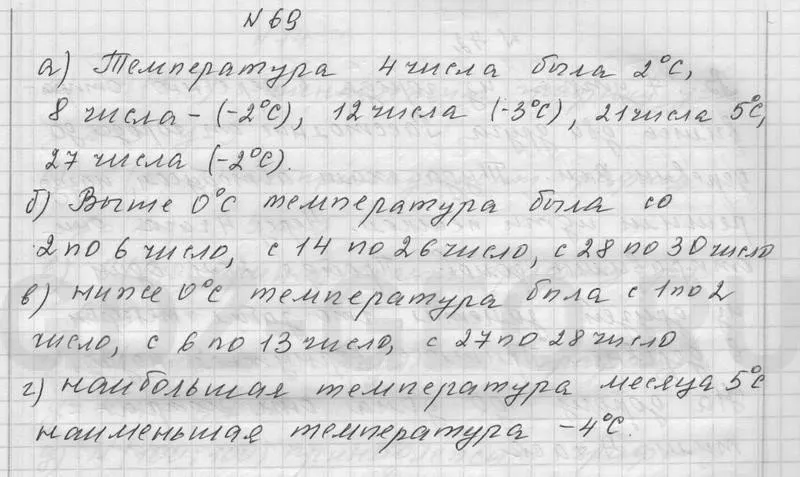 №69
а) Температура 4 числа была 2°С,
8 числа – (-2°С), 12 числа (-3°С), 21 числа 5°С,
27 числа (-2°С).
б) Выше 0°С температура была со
2 по 6 число, с 14 по 26 число, с 28 по 30 число
в) ниже 0°С температура была с 1 по 2
число, с 6 по 13 число, с 27 по 28 число
г) наибольшая температура месяца 5°С
наименьшая температура -4°С.